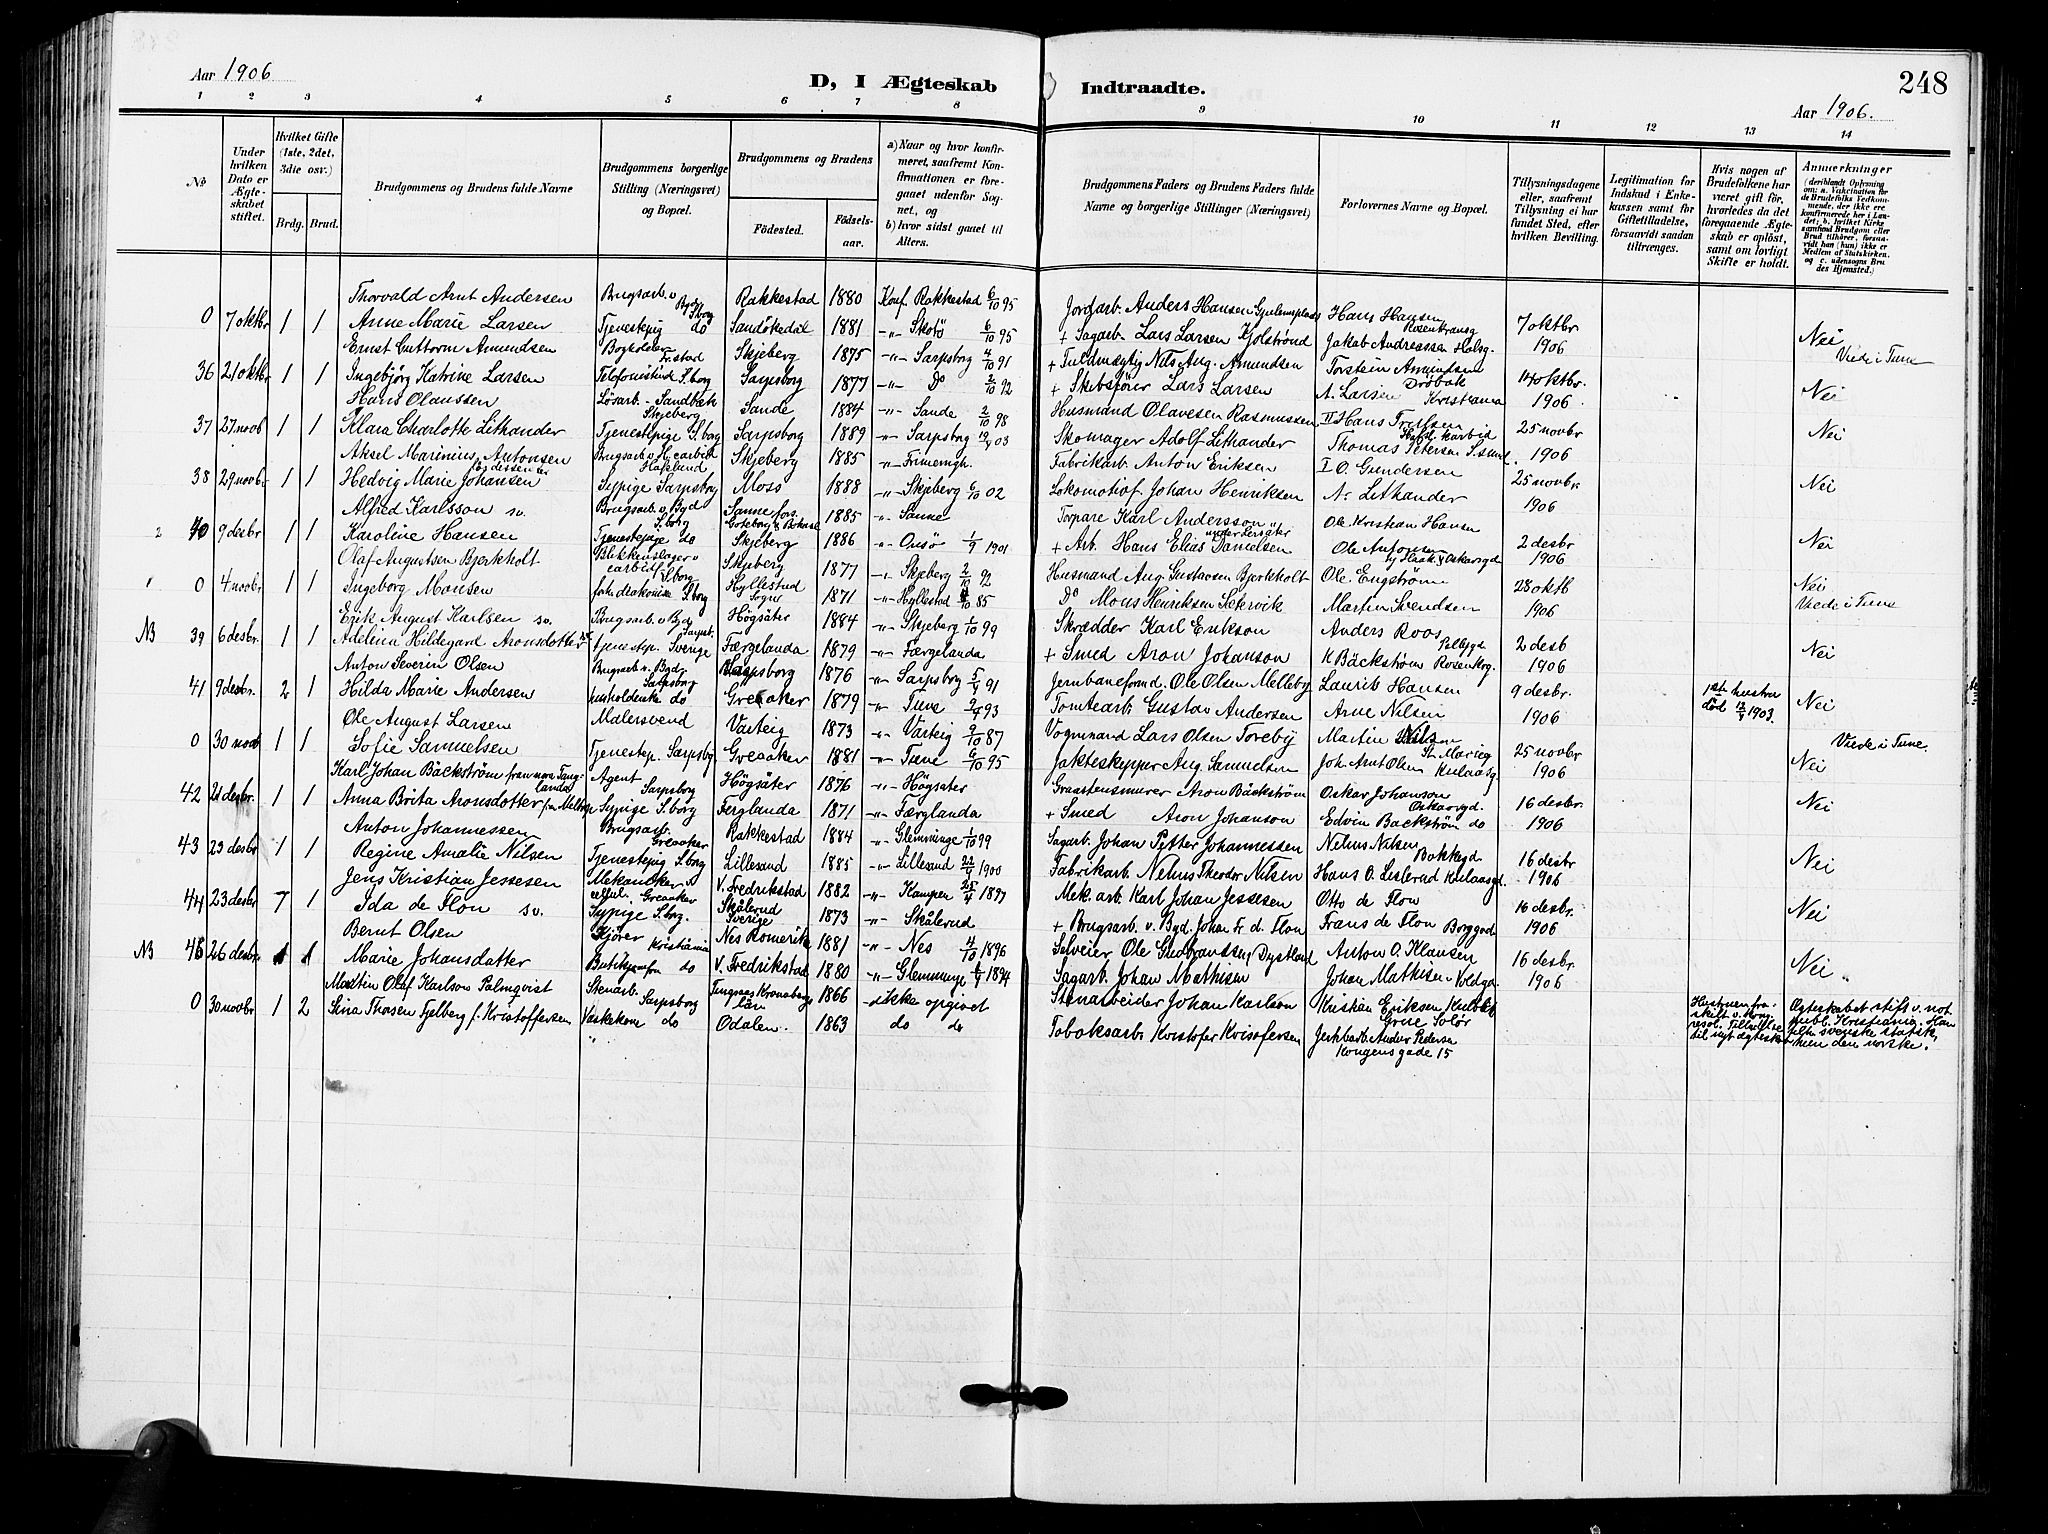 Aar 1906
D, I Ægteskab Indtraadte.
248
Aar 1906.
1 2 3 4 5 6 7 8 9 10 11 12 13 14
No
Under hvilken Dato er Ægteskabet stiftet.
Hvilket Gifte (1ste, 2det, 3die osv.)
Brdg. Brud.
Brudgommens og Brudens fulde Navne
Brudgommens borgerlige Stilling (Næringsvei) og Bopæl.
Brudgommens og Brudens
Fødested. Fødselsaar.
a) Naar og hvor konfirmeret, saafremt Konfirmationen er foregaaet udenfor Sognet, og
b) hvor sidst gaaet til Alters.
Brudgommens Faders og Brudens Faders fulde Navne og borgerlige Stillinger (Næringsvei)
Forlovernes Navne og Bopæl.
Tillysningsdagene eller, saafremt Tillysning ei har fundet Sted, efter hvilken Bevilling.
Legitimation for Indskud i Enkekassen samt for Giftetilladelse, forsaavidt saadan tiltrænges.
Hvis nogen af Brudefolkene har været gift før, hvorledes da det foregaaende Ægteskab er opløst, samt om lovligt Skifte er holdt.
Anmærkninger
(deriblandt Oplysning om: a. Vakcination for de Brudefolks Vedkommende, der ikke ere konfirmerede her i Landet; b. hvilket Kirkesamfund Brudgom eller Brud tilhører, forsaavidt han (hun) ikke er Medlem af Statskirken, og c. udensogns Brudes Hjemsted.)
Thorvald Arnt Andersen Brugsarb. v Byd S.borg Rakkestad 1880 Konf. Rakkestad 6/10 95 Jordarb. Anders Hansen Hans Hansen
0 7 oktbr 1 1 Anne Marie Larsen Tjenestepig do Sandökedal 1881 -"- Skotö 6/10 95 + Sagarb. Lars Larsen Kjolstrønd Rosenkransg 7 oktbr 1906 Nei
Ernst Guttorm Amundsen Bogholder Fr.stad Skjeberg 1875 -"- Sarpsborg 4/10 91 + Fuldmægtig Nils Aug. Amundsen Jakob Andreassen Halsg. Viede i Tune
36 21 oktbr 1 1 Ingebjörg Katrine Larsen Telefonistinde S.borg Sarpsborg 1877 -"- Do 2/10 92 + Skibsfører Lars Larsen Torstein Amundsen Drøbak A. Larsen Kristiania 14 oktbr. 1906 Nei
Hans Olaussen Løsarb. - Sandbæk Skjeberg Sande 1884 -"- Sande 2/10 98 Husmand Olavesen Rasmussen
37 27 novb 1 1 Klara Charlotte Lethander Tjenestepige S.borg Sarpsborg 1889 -"- Sarpsborg 03 Skomager Adolf Lethander 25 novbr 1906 Nei
Aksel Marinius Antonsen Hafslund Skjeberg 1885 -"- Frimenigh. Fabrikarb. Anton Eriksen Thomas Petersen
38 29 novb. 1 1 Hedvig Marie Johansen Sypige Sarpsborg Moss 1888 -"- Skjeberg 6/10 02 Lokomotivf. Johan Henriksen O. Gundersen 25 novbr. 1906 Nei
Alfred Karlsson sv. Brugsarb. v. Byd S.borg Sanne 1885 -"- Sanne Torpare Karl Andersson A. Lethander
2 40 9 desbr 1 1 Karoline Hansen Tjenestepige do Skjeberg 1886 -"- Onsö 1/9 1901 + Arb. Hans Elias Danielsen Ole Kristian Hansen 2 desbr 1906 Nei
Olaf Augustsen Bjerkholt Blikkenslager Skjeberg 1877 -"- Skjeberg 2/10 92 Husmand Aug. Gustavsen Bjerkholt Ole Antonsen
0 4 novbr 1 1 Ingeborg Monsen S.borg Hyllestad Sogn 1871 -"- Hyllestad 85 Do Mons Henriksen Ole Engstrøm 28 oktb 1906 Nei Viede i Tune
Erik August Karlsen sv. Brugsarb v Byd Sarpsb. Högsäter 1884 -"- Skjeberg 1/10 99 Skrædder Karl Erikson Martin Svendsen
NB 39 6 desbr. 1 1 Adelina Hildegard Aronsdotter tjenestep. Sverige Færgelanda 1879 -"- Færgelanda + Smed Aron Johanson Anders Roos K Bäckstrøm Rosenkrg. 2 desb 1906 Nei
Anton Severin Olsen Brugsarb v. Byd. Sarpsborg Sarpsborg 1876 -"- Sarpsborg 5/4 91 Jernbaneformd. Ole Olsen Melleby
41 9 desbr. 2 1 Hilda Marie Andersen husholderske do Greaaker 1879 -"- Tune 93 Tomtearb. Gustav Andersen Laurits Hansen Arne Nilsen 9 desbr. 1906 1ste hustru död 1903. Nei
Ole August Larsen Malersvend Varteig 1873 -"- Varteig 9/10 87 Vognmand Lars Olsen Toreby Martin Nilsen
0 30 novb 1 1 Sofie Samuelsen Tjenestep. Sarpsbg. Greaaker 1881 -"- Tune 6/10 95 Jakteskipper Aug. Samuelsen St. Marieg Joh. Arnt Olsen Kulaasg 25 novbr 1906 Nei Viede i Tune.
Karl Johan Bäckström Agent Sarpsborg Högsäter 1876 -"- Högsäter Graastensmurer Aron Bäckström Oskar Johanson Oskarsgd.
42 21 desbr. 1 1 Anna Brita Aronsdotter Sypige S.borg Ferglanda 1871 -"- Færglanda + Smed Aron Johanson Edvin Backström do 16 desbr. 1906 Nei
Anton Johannessen Brugsarb. Greaaker Rakkestad 1884 -"- Glemminge 1/10 99 Sagarb. Johan Petter Johannessen Nelius Nilsen Bakkegd
43 23 desbr 1 1 Regine Amalie Nilsen Tjenestepig S.borg Lillesand 1885 -"- Lillesand 1900 Fabrikarb. Nelius Theodor Nilsen Hans O. Kulaasgd. 16 desbr 1906 Nei
Jens Kristian Jessesen Greaaker V. Fredrikstad 1882 -"- Kampen 1897 Mek. arb. Karl Johan Jessesen Otto de Flon
44 23 desbr 1 1 Ida de Flon sv. Sypige S.bg. Skålerud Sverige 1873 -"- Skålerud + Brugsarb. v. Byd. Johan Fr. d. Flon Frans de Flon Borggade 16 desbr. 1906 Nei
Bernt Olsen Kjører Kristiania Nes Romerike 1881 -"- Nes 4/10 1896 Selveier Ole Gudbrandsen Dystland Anton O. Klausen
NB 45 26 desbr. 1 1 Marie Johansdatter do V. Fredrikstad 1880 -"- Glemminge 1894 Sagarb. Johan Mathisen Johan Mathisen Voldgd. 16 desbr 1906 Nei
Martin Olaf Karlson Palmqvist Stenarb. Sarpsborg Kronobergs län 1866 -ikke opgivet Stenarbeider Johan Karlson Kristian Eriksen Grue Solør
0 30 novbr 1 2 Sina Thorsen Fjelberg f. Kristoffersen Vaskekone do Odalen. 1863 do do Tobaksarb. Kristofer Kristofersen Anders Pedersen Kongensgade 15
Hustruen fraskilt v. Kong. resol. Tilladelse til nyt ægteskab
Ægteskabet stift. v. not. publ. Kristiania. Han svenske statsk, hun den norske.